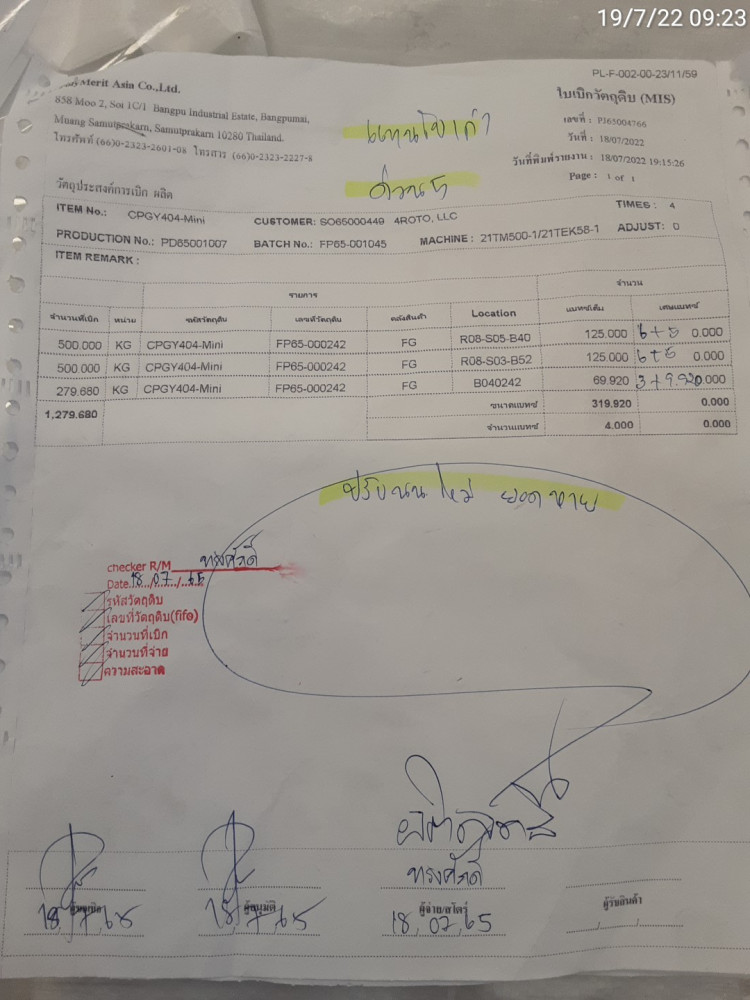 19/7/22 09:23
PL-F-002-00-23/11/59
Merit Asia Co.,Ltd.
858 Moo 2, Soi 1C/1 Bangpu Industrial Estate, Bangpumai,
Muang Samutprakarn, Samutprakarn 10280 Thailand.
โทรศัพท์ (66)0-2323-2601-08 โทรสาร (66)0-2323-2227-8
ใบเบิกวัตถุดิบ (MIS)
เลขที่ : PI65004766
วันที่ : 18/07/2022
วันที่พิมพ์รายงาน : 18/07/2022 19:15:26
Page : 1 of 1
แทนใบเก่า
ด่วน
วัตถุประสงค์การเบิก ผลิต
ITEM No.: CPGY404-Mini CUSTOMER: SO65000449 4ROTO, LLC TIMES : 4
PRODUCTION No.: PD65001007 BATCH No.: FP65-001045 MACHINE : 21TM500-1/21TEK58-1 ADJUST: 0
ITEM REMARK :
รายการ จำนวน
จำนวนที่เบิก หน่วย รหัสวัตถุดิบ เลขที่วัตถุดิบ คลังสินค้า Location แบทช์เต็ม เศษแบทช์
500.000 KG CPGY404-Mini FP65-000242 FG R08-S05-B40 125.000 6+5 0.000
500.000 KG CPGY404-Mini FP65-000242 FG R08-S03-B52 125.000 6+5 0.000
279.680 KG CPGY404-Mini FP65-000242 FG B040242 69.920 3+9.920 0.000
1,279.680 ขนาดแบทช์ 319.920 0.000
จำนวนแบทช์ 4.000 0.000
ปรับนน ใหม่ ยอดหาย
checker R/M ทรงศักดิ์
Date 18/07/65
รหัสวัตถุดิบ
เลขที่วัตถุดิบ(fifo)
จำนวนที่เบิก
จำนวนที่จ่าย
ความสะอาด
ทรงศักดิ์
ผู้อนุมัติ ผู้จ่าย/สโตร์ ผู้รับสินค้า
18/7/65 18/7/65 18/07/65